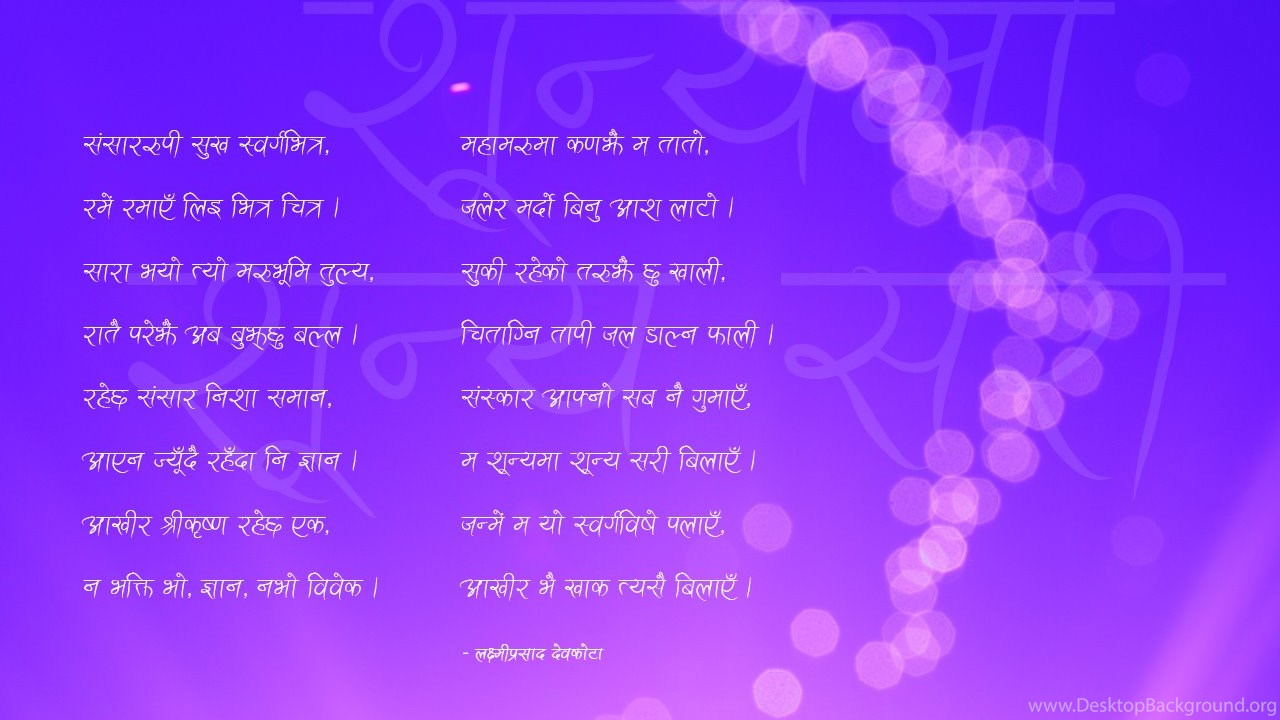 शून्यमा
शून्य सरी
संसाररुपी सुख स्वर्गभित्र,
रमें रमाएँ लिइ भित्र चित्र ।
सारा भयो त्यो मरुभूमि तुल्य,
रातै परेझै अब बुझ्छु बल्ल ।
रहेछ संसार निशा समान,
आएन ज्यूँदै रहँदा नि ज्ञान ।
आखीर श्रीकृष्ण रहेछ एक,
न भक्ति भो, ज्ञान, नभो विवेक ।
महामरुमा कणझै म तातो,
जलेर मर्दो बिनु आश लाटो ।
सुकी रहेको तरुझै छु खाली,
चिताग्नि तापी जल डाल्न फाली ।
संस्कार आफ्नो सब नै गुमाएँ,
म शून्यमा शून्य सरी बिलाएँ ।
जन्में म यो स्वर्गविषे पलाएँ,
आखीर भै खाक त्यसै बिलाएँ ।
- लक्ष्मीप्रसाद देवकोटा
www.DesktopBackground.org